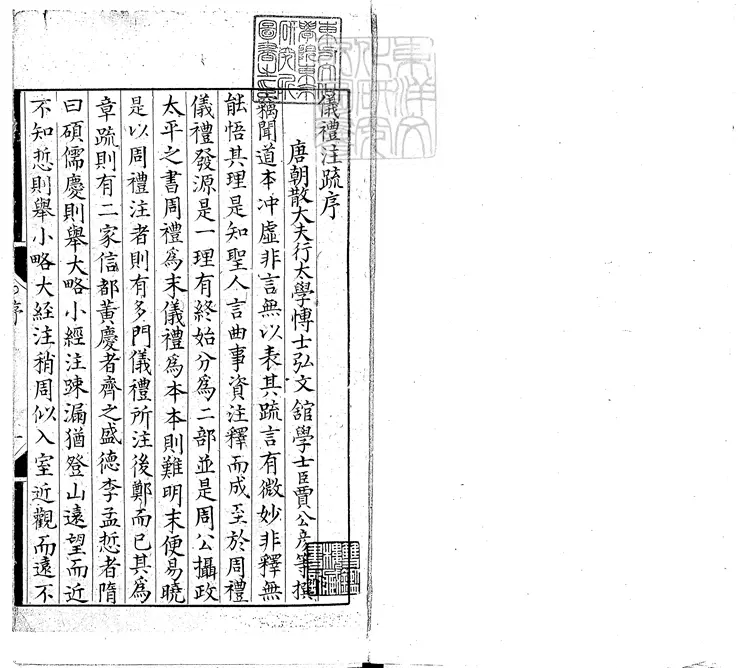 東方文化
學院東京
研究所
圖書之印
儀禮注疏序
唐朝散大夫行太學博士弘文館學士臣賈公彥等撰
竊聞道本冲虛非言無以表其疏言有微妙非釋無
能悟其理是知聖人言曲事資注釋而成至於周禮
儀禮發源是一理有終始分爲二部並是周公攝政
太平之書周禮爲末儀禮爲本本則難明末便易曉
是以周禮注者則有多門儀禮所注後鄭而已其爲
章疏則有二家信都黃慶者齊之盛德李孟悊者隋
曰碩儒慶則舉大略小經注踈漏猶登山遠望而近
不知悊則舉小略大経注稍周似入室近觀而遠不
序
一